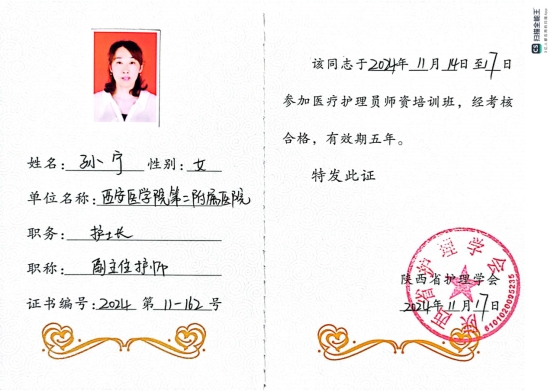 姓名：孙宁 性别：女
单位名称：西安医学院第二附属医院
职务：护士长
职称：副主任护师
证书编号：2024 第 11-162 号
该同志于2024年11月14日至17日
参加医疗护理员师资培训班，经考核
合格，有效期五年。
特发此证
陕西省护理学会
2024年11月17日
陕西省护理学会
6101020095235
扫描全能王